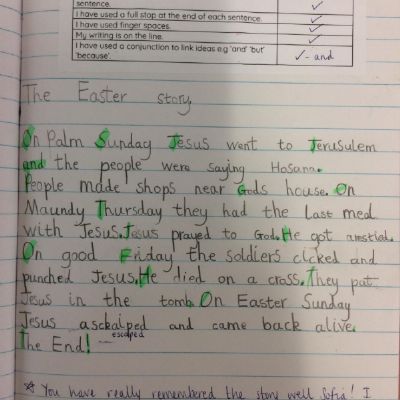 sentence. ✓
I have used a full stop at the end of each sentence. ✓
I have used finger spaces. ✓
My writing is on the line. ✓
I have used a conjunction to link ideas e.g 'and' 'but' 'because'. ✓ - and
The Easter story
On Palm Sunday Jesus went to Jerusulem
and the people were saying Hosann.
People made shops near Gods house. On
Maundy Thursday they had the Last meal
with Jesus. Jesus prayed to God. He got arrestid.
On good Friday the soldiers cicked and
punched Jesus. He died on a cross. They pat
Jesus in the tomb. On Easter Sunday
Jesus asckaiped and came back alive.
escaped
The End!
* You have really remembered the story well Sofia! I